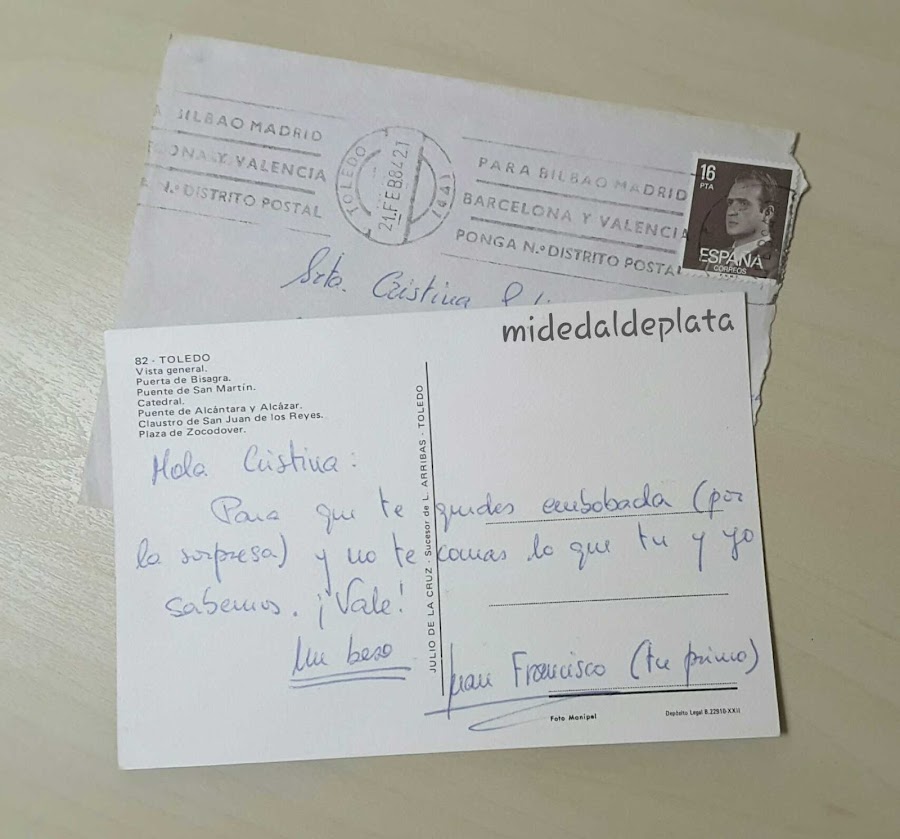 BILBAO MADRID
ONA Y VALENCIA
N.º DISTRITO POSTAL
TOLEDO
21.FEB8421
PARA BILBAO MADRID
BARCELONA Y VALENCIA
PONGA N.º DISTRITO POSTAL
16
PTA
ESPAÑA
CORREOS
Srta. Cristina
midedaldeplata
82 - TOLEDO
Vista general.
Puerta de Bisagra.
Puente de San Martín.
Catedral.
Puente de Alcántara y Alcázar.
Claustro de San Juan de los Reyes.
Plaza de Zocodover.
JULIO DE LA CRUZ - Sucesor de L. ARRIBAS - TOLEDO
Hola Cristina:
Para que te quedes embobada (por
la sorpresa) y no te comas lo que tu y yo
sabemos. ¡Vale!
Un beso
Juan Francisco (tu primo)
Foto Manipel
Depósito Legal B. 22910-XXII